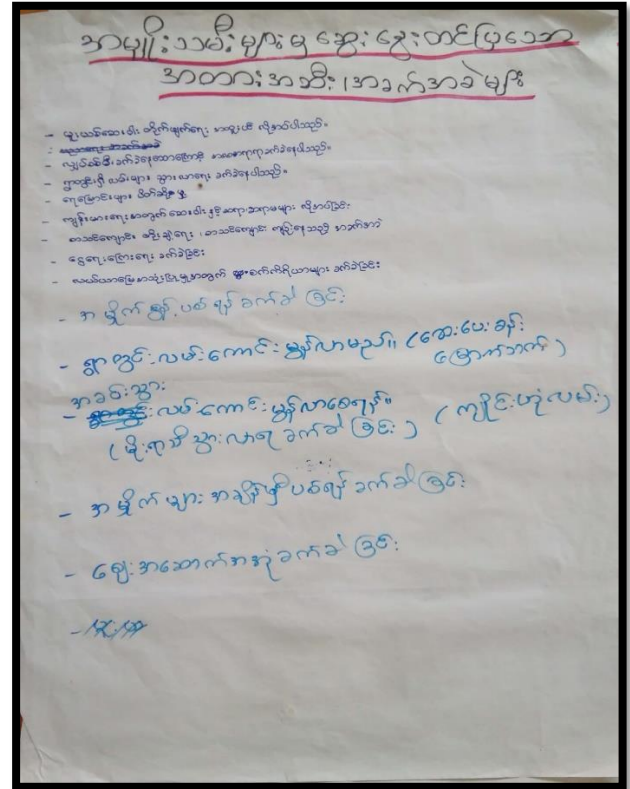 အမျိုးသမီးများမှ ဆွေးနွေးတင်ပြသော
အတားအဆီး၊အခက်အခဲများ
- မူးယစ်ဆေးဝါး တိုက်ဖျက်ရေး လိုအပ်ပါသည်။
- လျှပ်စစ်မီး ခက်ခဲနေသောကြောင့် ခက်ခဲနေပါသည်။
- ရွာတွင်းရှိ လမ်းများ သွားလာရေး ခက်ခဲနေပါသည်။
- ရေမြောင်းများ ပိတ်ဆို့မှု
- ကျန်းမာရေးအတွက် ဆေးဝါးနှင့်ဆရာ၊ဆရာမများ လိုအပ်ခြင်း
- စာသင်ကျောင်း တိုးချဲ့ရေး၊ စာသင်ကျောင်း ကျဉ်းနေသည့် အခက်အခဲ
- ငွေရေးကြေးရေး ခက်ခဲခြင်း
- လယ်ယာမြေအသုံးပြုမှုအတွက် စက်ကိရိယာများ ခက်ခဲခြင်း
- အမှိုက်စွန့်ပစ်ရန်ခက်ခဲခြင်း
- ရွာတွင်းလမ်းကောင်းမွန်လာမည်။ (ဆေးပေးခန်း
မြောက်ဘက်)
အခင်းသွား
- လမ်းကောင်းမွန်လာစေရန်။ (ကျိုင်းဟုံလမ်း)
(မိုးရာသီသွားလာရခက်ခဲခြင်း)
- အမှိုက်များအချိန်မှီပစ်ရန်ခက်ခဲခြင်း
- ဈေးအဆောက်အအုံခက်ခဲခြင်း